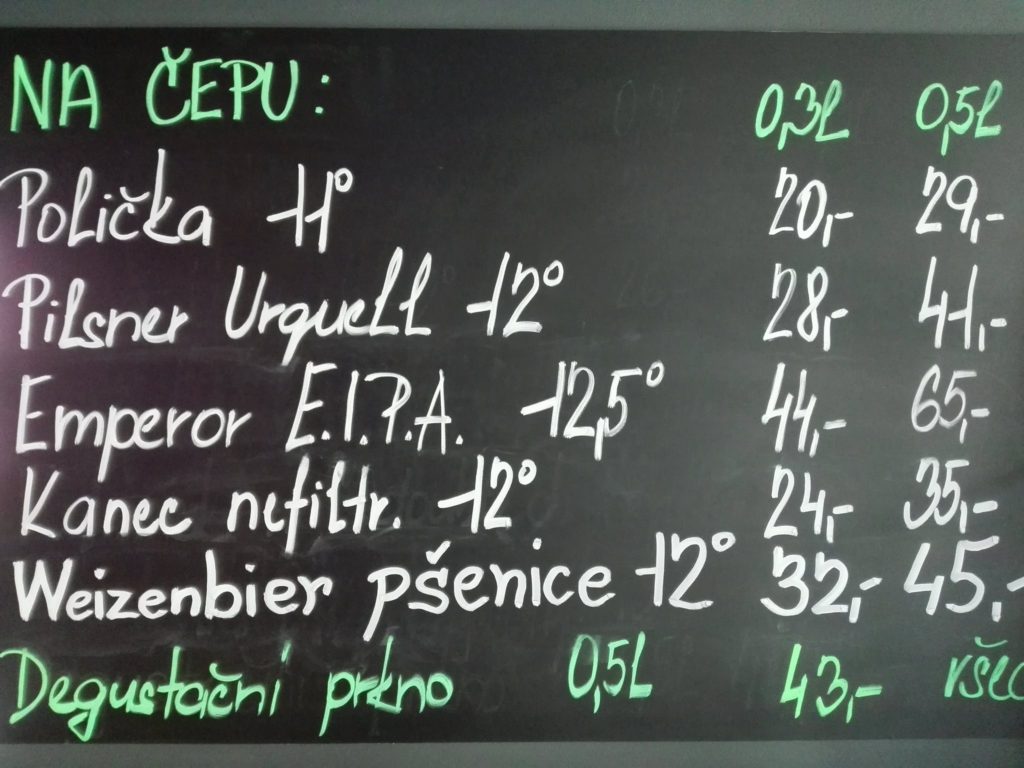 NA ČEPU: 0,3l 0,5l
Polička 11° 20,- 29,-
Pilsner Urquell 12° 28,- 41,-
Emperor E.I.P.A. 12,5° 44,- 65,-
Kanec nefiltr. 12° 24,- 35,-
Weizenbier pšenice 12° 32,- 45,-
Degustační prkno 0,5l 43,-